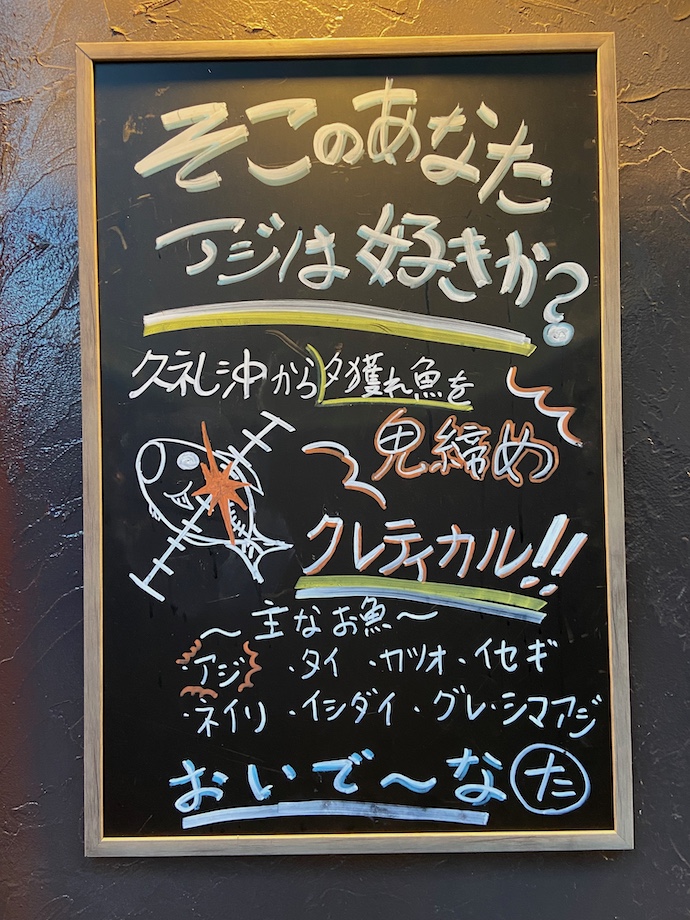 そこのあなた
アジは好きか?
久礼沖から夕獲れ魚を
鬼締め
クレティカル!!
〜主なお魚〜
・アジ ・タイ ・カツオ・イセギ
・ネイリ ・イシダイ ・グレ・シマアジ
おいで〜な た